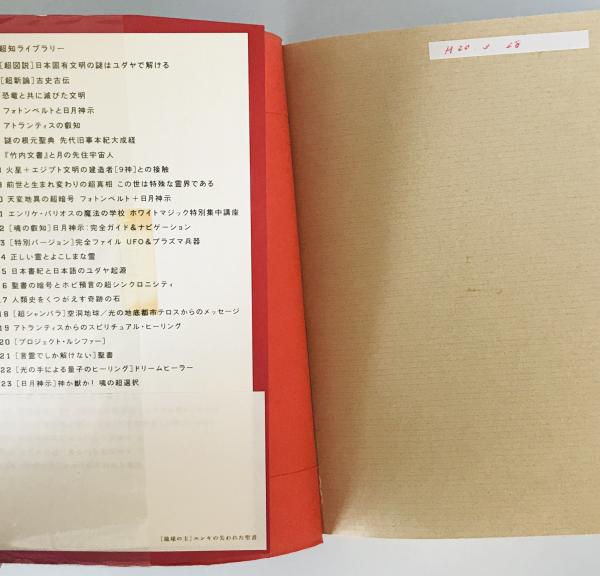 超知ライブラリー
[超図説]日本固有文明の謎はユダヤで解ける
[超新論]古史古伝
恐竜と共に滅びた文明
フォトンベルトと日月神示
アトランティスの叡知
謎の根元聖典 先代旧事本紀大成経
『竹内文書』と月の先住宇宙人
火星+エジプト文明の建造者[9神]との接触
前世と生まれ変わりの超真相 この世は特殊な霊界である
0 天変地異の超暗号 フォトンベルト+日月神示
1 エンリケ・バリオスの魔法の学校 ホワイトマジック特別集中講座
2 [魂の叡知]日月神示:完全ガイド&ナビゲーション
3 [特別バージョン]完全ファイル UFO&プラズマ兵器
4 正しい霊とよこしまな霊
5 日本書紀と日本語のユダヤ起源
6 聖書の暗号とホピ預言の超シンクロニシティ
17 人類史をくつがえす奇跡の石
18 [超シャンバラ]空洞地球/光の地底都市テロスからのメッセージ
19 アトランティスからのスピリチュアル・ヒーリング
20 [プロジェクト・ルシファー]
21 [言霊でしか解けない]聖書
22 [光の手による量子のヒーリング]ドリームヒーラー
23 [日月神示]神か獣か! 魂の超選択
[地球の主]エンキの失われた聖書
H20. 28